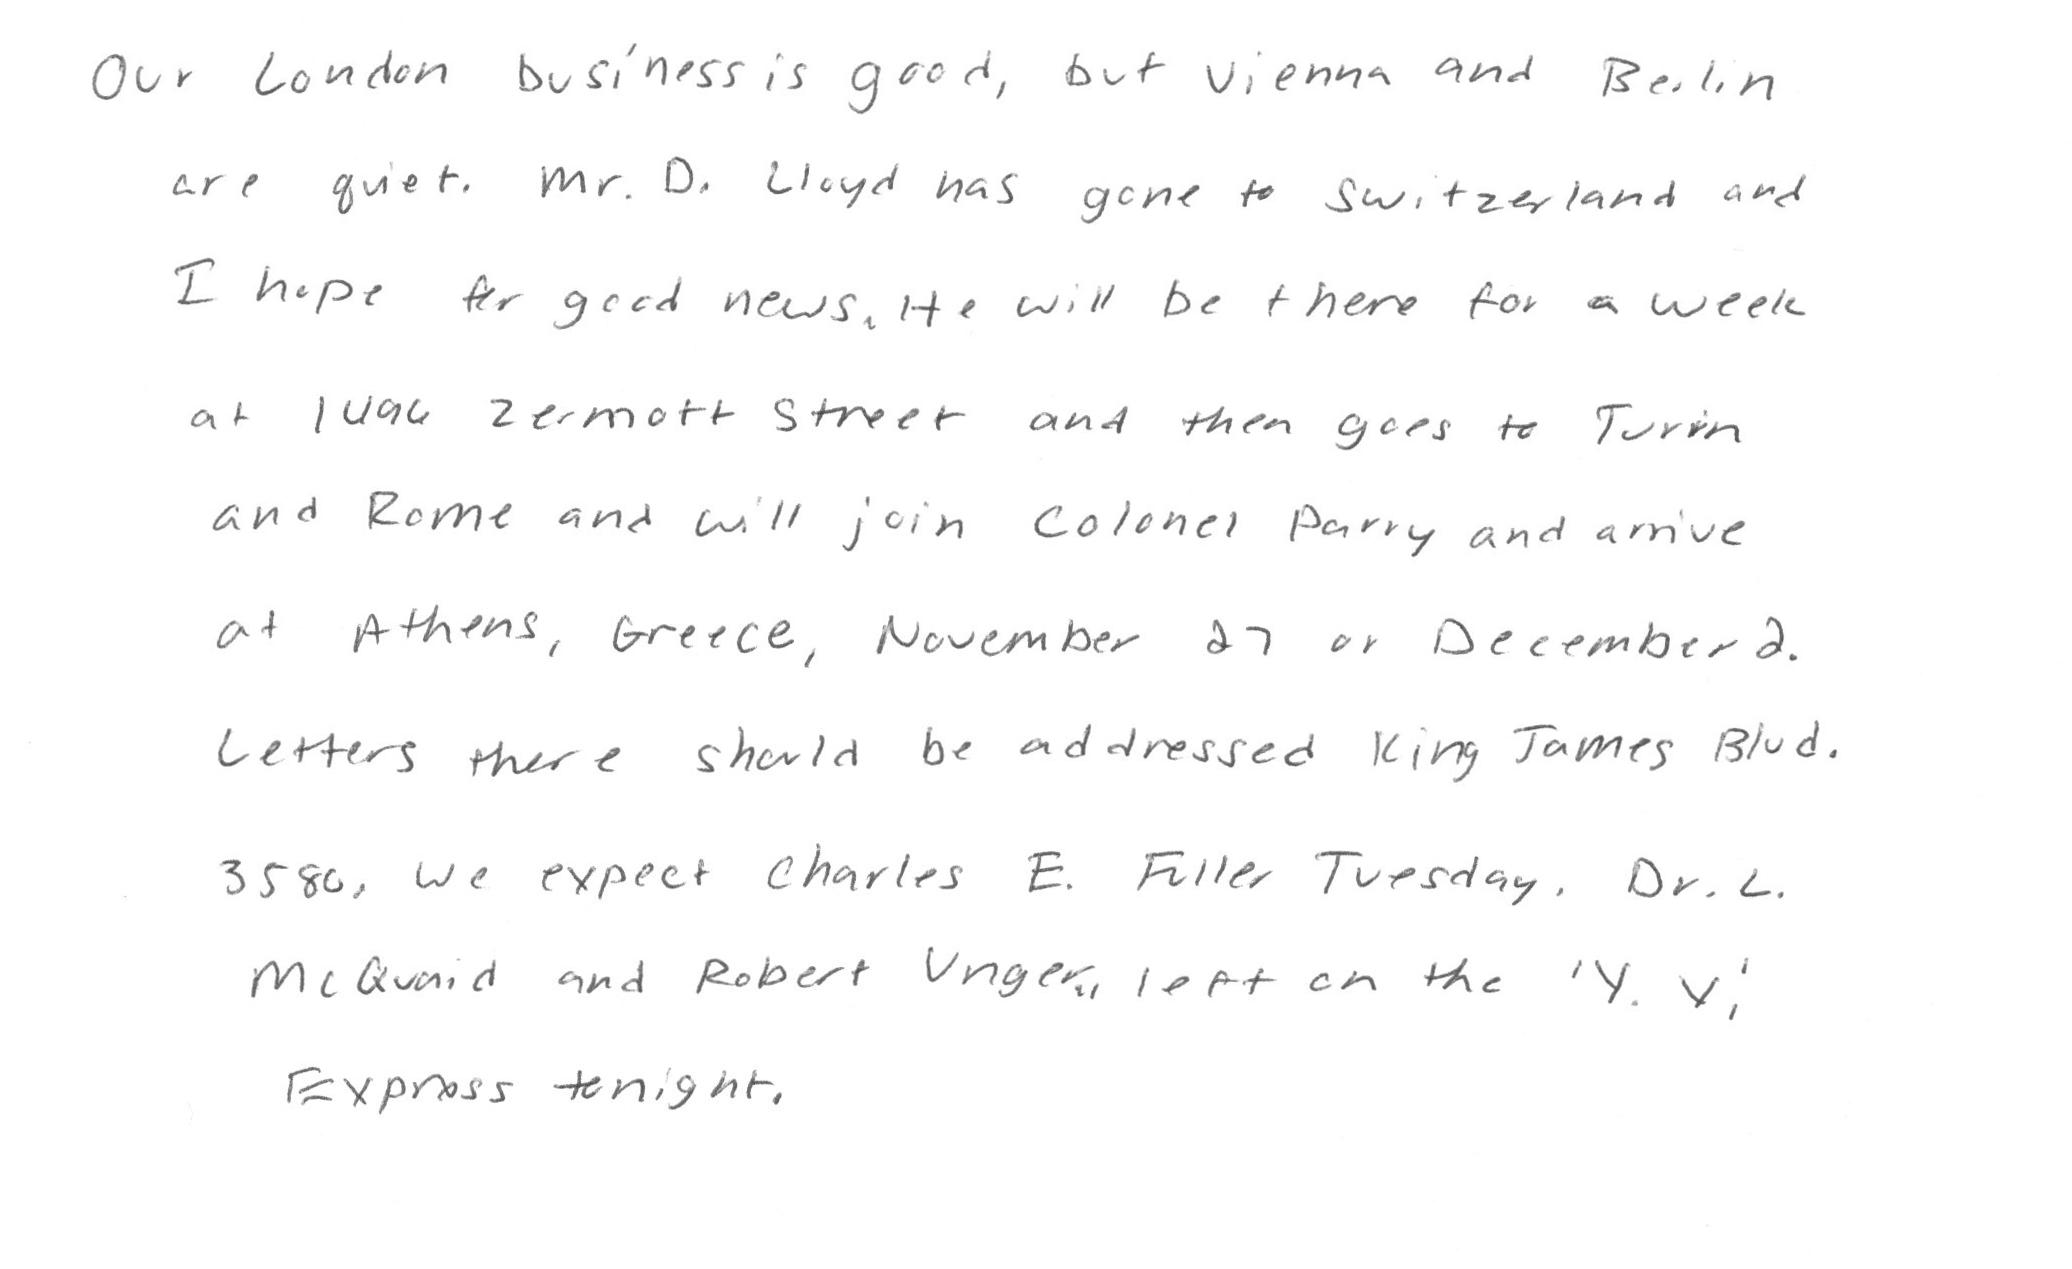 Our London business is good, but Vienna and Berlin
are quiet. Mr. D. Lloyd has gone to Switzerland and
I hope for good news. He will be there for a week
at 1496 Zermott Street and then goes to Turin
and Rome and will join Colonel Parry and arrive
at Athens, Greece, November 27 or December 2.
Letters there should be addressed King James Blvd.
3580. We expect Charles E. Fuller Tuesday. Dr. L.
McQuaid and Robert Unger, left on the 'Y. X.'
Express tonight.